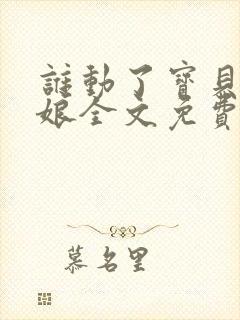 誰動了寶貝
娘全文免費
慕名里